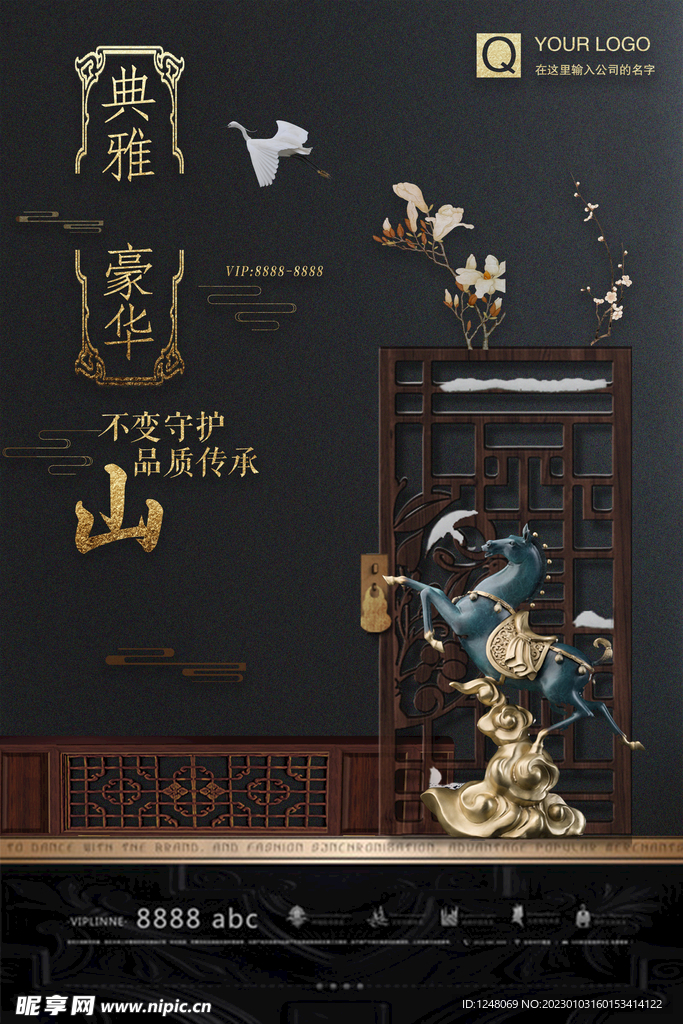 典雅
豪华
Q
YOUR LOGO
在这里输入公司的名字
VIP:8888-8888
不变守护
品质传承
山
TO DANCE WITH THE BRAND, AND FASHION SYNCHRONISATION, ADVANTAGE POPULAR MERCHANTS
-VIPLINNE- 8888 abc
昵享网 www.nipic.cn
ID:1248069 NO:20230103160153414122